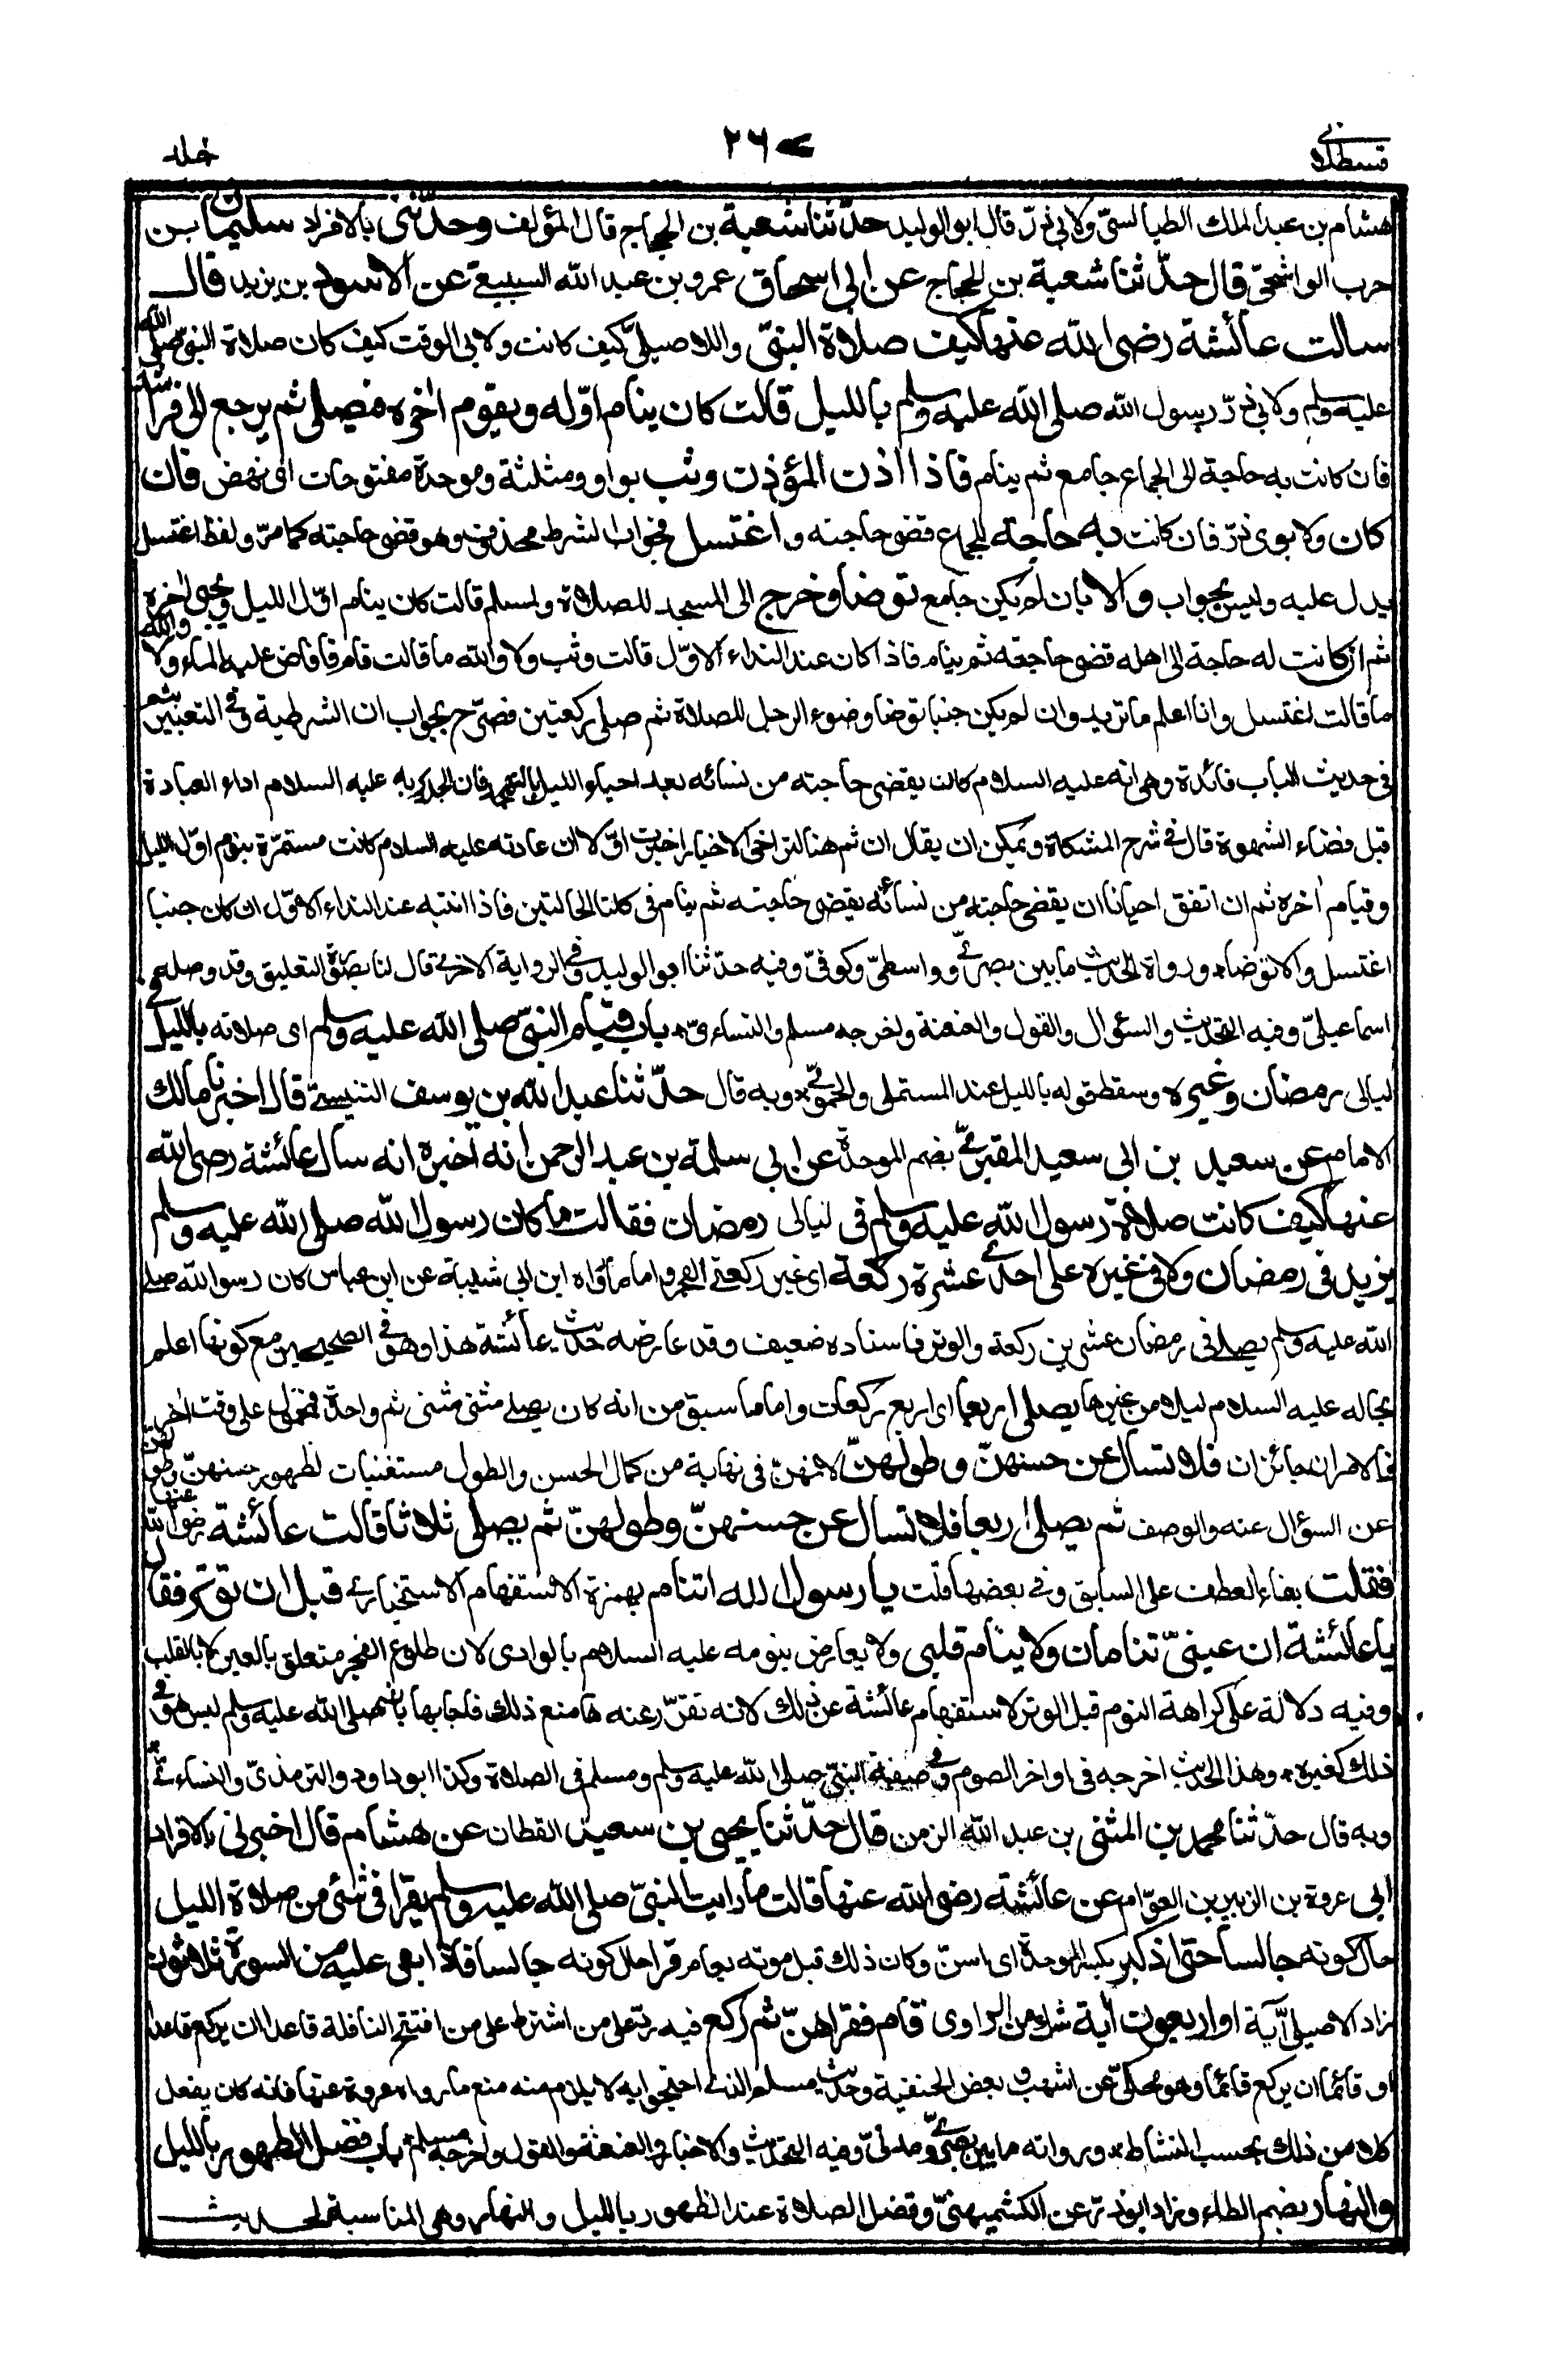 قسطلانى
٢٦٧
جلد
هشام بن عبد الملك الطيالسىّ ولابى ذرّ قال ابو الوليد حدّثنا شعبة بن الحجاج قال المؤلف وحدّثنى بالافراد سليمان بن
حرب الواشحىّ قال حدّثنا شعبة بن الحجاج عن ابى اسحاق عمرو بن عبد الله السبيعى عن الاسود بن يزيد قال
سالت عائشة رضى الله عنها كيف صلاة النبىّ وللاصيلىّ كيف كانت ولابى الوقت كيف كان صلاة النبىّ صلى الله
عليه وسلم ولابى ذرّ رسول الله صلى الله عليه وسلم بالليل قالت كان ينام اوّله ويقوم اخره فيصلى ثم يرجع الى فراشه
فان كانت به حاجة الى الجماع جامع ثم ينام فاذا اذن المؤذن وثب بواو ومثلثة وموحدة مفتوحات اى نهض فان
كان ولابوى ذرّ فان كانت به حاجة للجماع قضى حاجته واغتسل فجواب الشرط محذوف وهو قضى حاجته كما مرّ ولفظ اغتسل
يدل عليه وليس بجواب والا بان لم يكن جامع توضأ وخرج الى المسجد للصلاة ولمسلم قالت كان ينام اوّل الليل ويحيى اخره
ثم ان كانت له حاجة الى اهله قضى حاجته ثم ينام فاذا كان عند النداء الاوّل قالت وثب ولا والله ما قالت قام فافاض عليه الماء ولا والله
ما قالت اغتسل وانا اعلم ما تريد وان لم يكن جنبا توضا وضوء الرجل للصلاة ثم صلى ركعتين فصرّح بجواب ان الشرطية وفى التعبير بثم
فى حديث الباب فائدة وهى انه عليه السلام كان يقضى حاجته من نسائه بعد احياء الليل بالتهجد فان الجدير به عليه السلام اداء العبادة
قبل قضاء الشهوة قال فى شرح المشكاة ويمكن ان يقال ان ثم هنا لتراخى الاخبار اخبرت اوّلا ان عادته عليه السلام كانت مستمرّة بنوم اوّل الليل
وقيام اخره ثم ان اتفق احيانا ان يقضى حاجته من نسائه يقضى حاجته ثم ينام فى كلتا الحالتين فاذا انتبه عند النداء الاوّل ان كان جنبا
اغتسل والا توضا* ورواة الحديث ما بين بصرىّ وواسطىّ وكوفىّ وفيه حدّثنا ابو الوليد وفى الرواية الاخرى قال لنا بصورة التعليق وقد وصله
اسماعيلىّ وفيه التحديث والسؤال والقول والعنعنة واخرجه مسلم والنساءىّ* باب قيام النبىّ صلى الله عليه وسلم اى صلاته بالليل فى
ليالى رمضان وغيره وسقط قوله بالليل عند المستملى والحموىّ* وبه قال حدّثنا عبد الله بن يوسف التنيسىّ قال اخبرنا مالك
الامام عن سعيد بن ابى سعيد المقبرىّ بضم الموحدة عن ابى سلمة بن عبد الرحمن انه اخبره انه سال عائشة رضى الله
عنها كيف كانت صلاة رسول الله عليه وسلم فى ليالى رمضان فقالت ما كان رسول الله صلى الله عليه وسلم
يزيد فى رمضان ولا فى غيره على احدى عشرة ركعة اى غير ركعتى الفجر واما ما رواه ابن ابى شيبة عن ابن عباس كان رسول الله صلى
الله عليه وسلم يصلى فى رمضان عشرين ركعة والوتر فاسناده ضعيف وقد عارضه حديث عائشة هذا وهو فى الصحيحين مع كونها اعلم
بحاله عليه السلام ليلا من غيرها يصلى اربعا اى اربع ركعات واما ما سبق من انه كان يصلى مثنى مثنى ثم واحدة فمحمول على وقت اخر
فالامران جائزان فلا تسال عن حسنهنّ وطولهنّ لانهنّ فى نهاية من كمال الحسن والطول مستغنيات لظهور حسنهنّ وطولهنّ
عن السؤال عنه والوصف ثم يصلى اربعا فلا تسال عن حسنهنّ وطولهنّ ثم يصلى ثلاثا قالت عائشة رضى الله عنها
فقلت بفاء العطف على السابق وفى بعضها قلت يا رسول الله اتنام بهمزة الاستفهام الاستخبارى قبل ان توتر فقال
يا عائشة ان عينىّ تنامان ولا ينام قلبى ولا يعارض بنومه عليه السلام بالوادى لان طلوع الفجر متعلق بالعين لا بالقلب
وفيه دلالة على كراهة النوم قبل الوتر لاستفهام عائشة عن ذلك لانه تقرّر عندها منع ذلك فاجابها بانه صلى الله عليه وسلم ليس هو فى
ذلك كغيره* وهذا الحديث اخرجه فى اواخر الصوم وفى صفة النبىّ صلى الله عليه وسلم ومسلم فى الصلاة وكذا ابو داود والترمذىّ والنساءىّ*
وبه قال حدّثنا محمد بن المثنى بن عبد الله الزمن قال حدّثنا يحيى بن سعيد القطان عن هشام قال اخبرنى بالافراد
ابى عروة بن الزبير بن العوّام عن عائشة رضى الله عنها قالت ما رايت النبىّ صلى الله عليه وسلم يقرا فى شئ من صلاة الليل
حال كونه جالسا حتى اذ كبر بكسر الموحدة اى اسنّ وكان ذلك قبل موته بعام قرا حال كونه جالسا فاذا بقى عليه من السورة ثلاثون
زاد الاصيلى آية او اربعون آية شك من الراوى قام فقراهنّ ثم ركع فيه ردّ على من اشترط على من افتتح النافلة قاعدا ان يركع قاعدا
او قائما ان يركع قائما وهو محكىّ عن اشهب وبعض الحنفية وحديث مسلم الذى احتجوا به لا يلزم منه منع ما رواه عروة عنها فانه كان يفعل
كلا من ذلك بحسب النشاط* ورواته ما بين بصرىّ ومدنىّ وفيه التحديث والاخبار والعنعنة والقول واخرجه مسلم* باب فضل الطهور بالليل
والنهار بضم الطاء وزاد ابو ذرّ عن الكشميهنىّ وفضل الصلاة عند الطهور بالليل والنهار وهى المناسبة لحديث